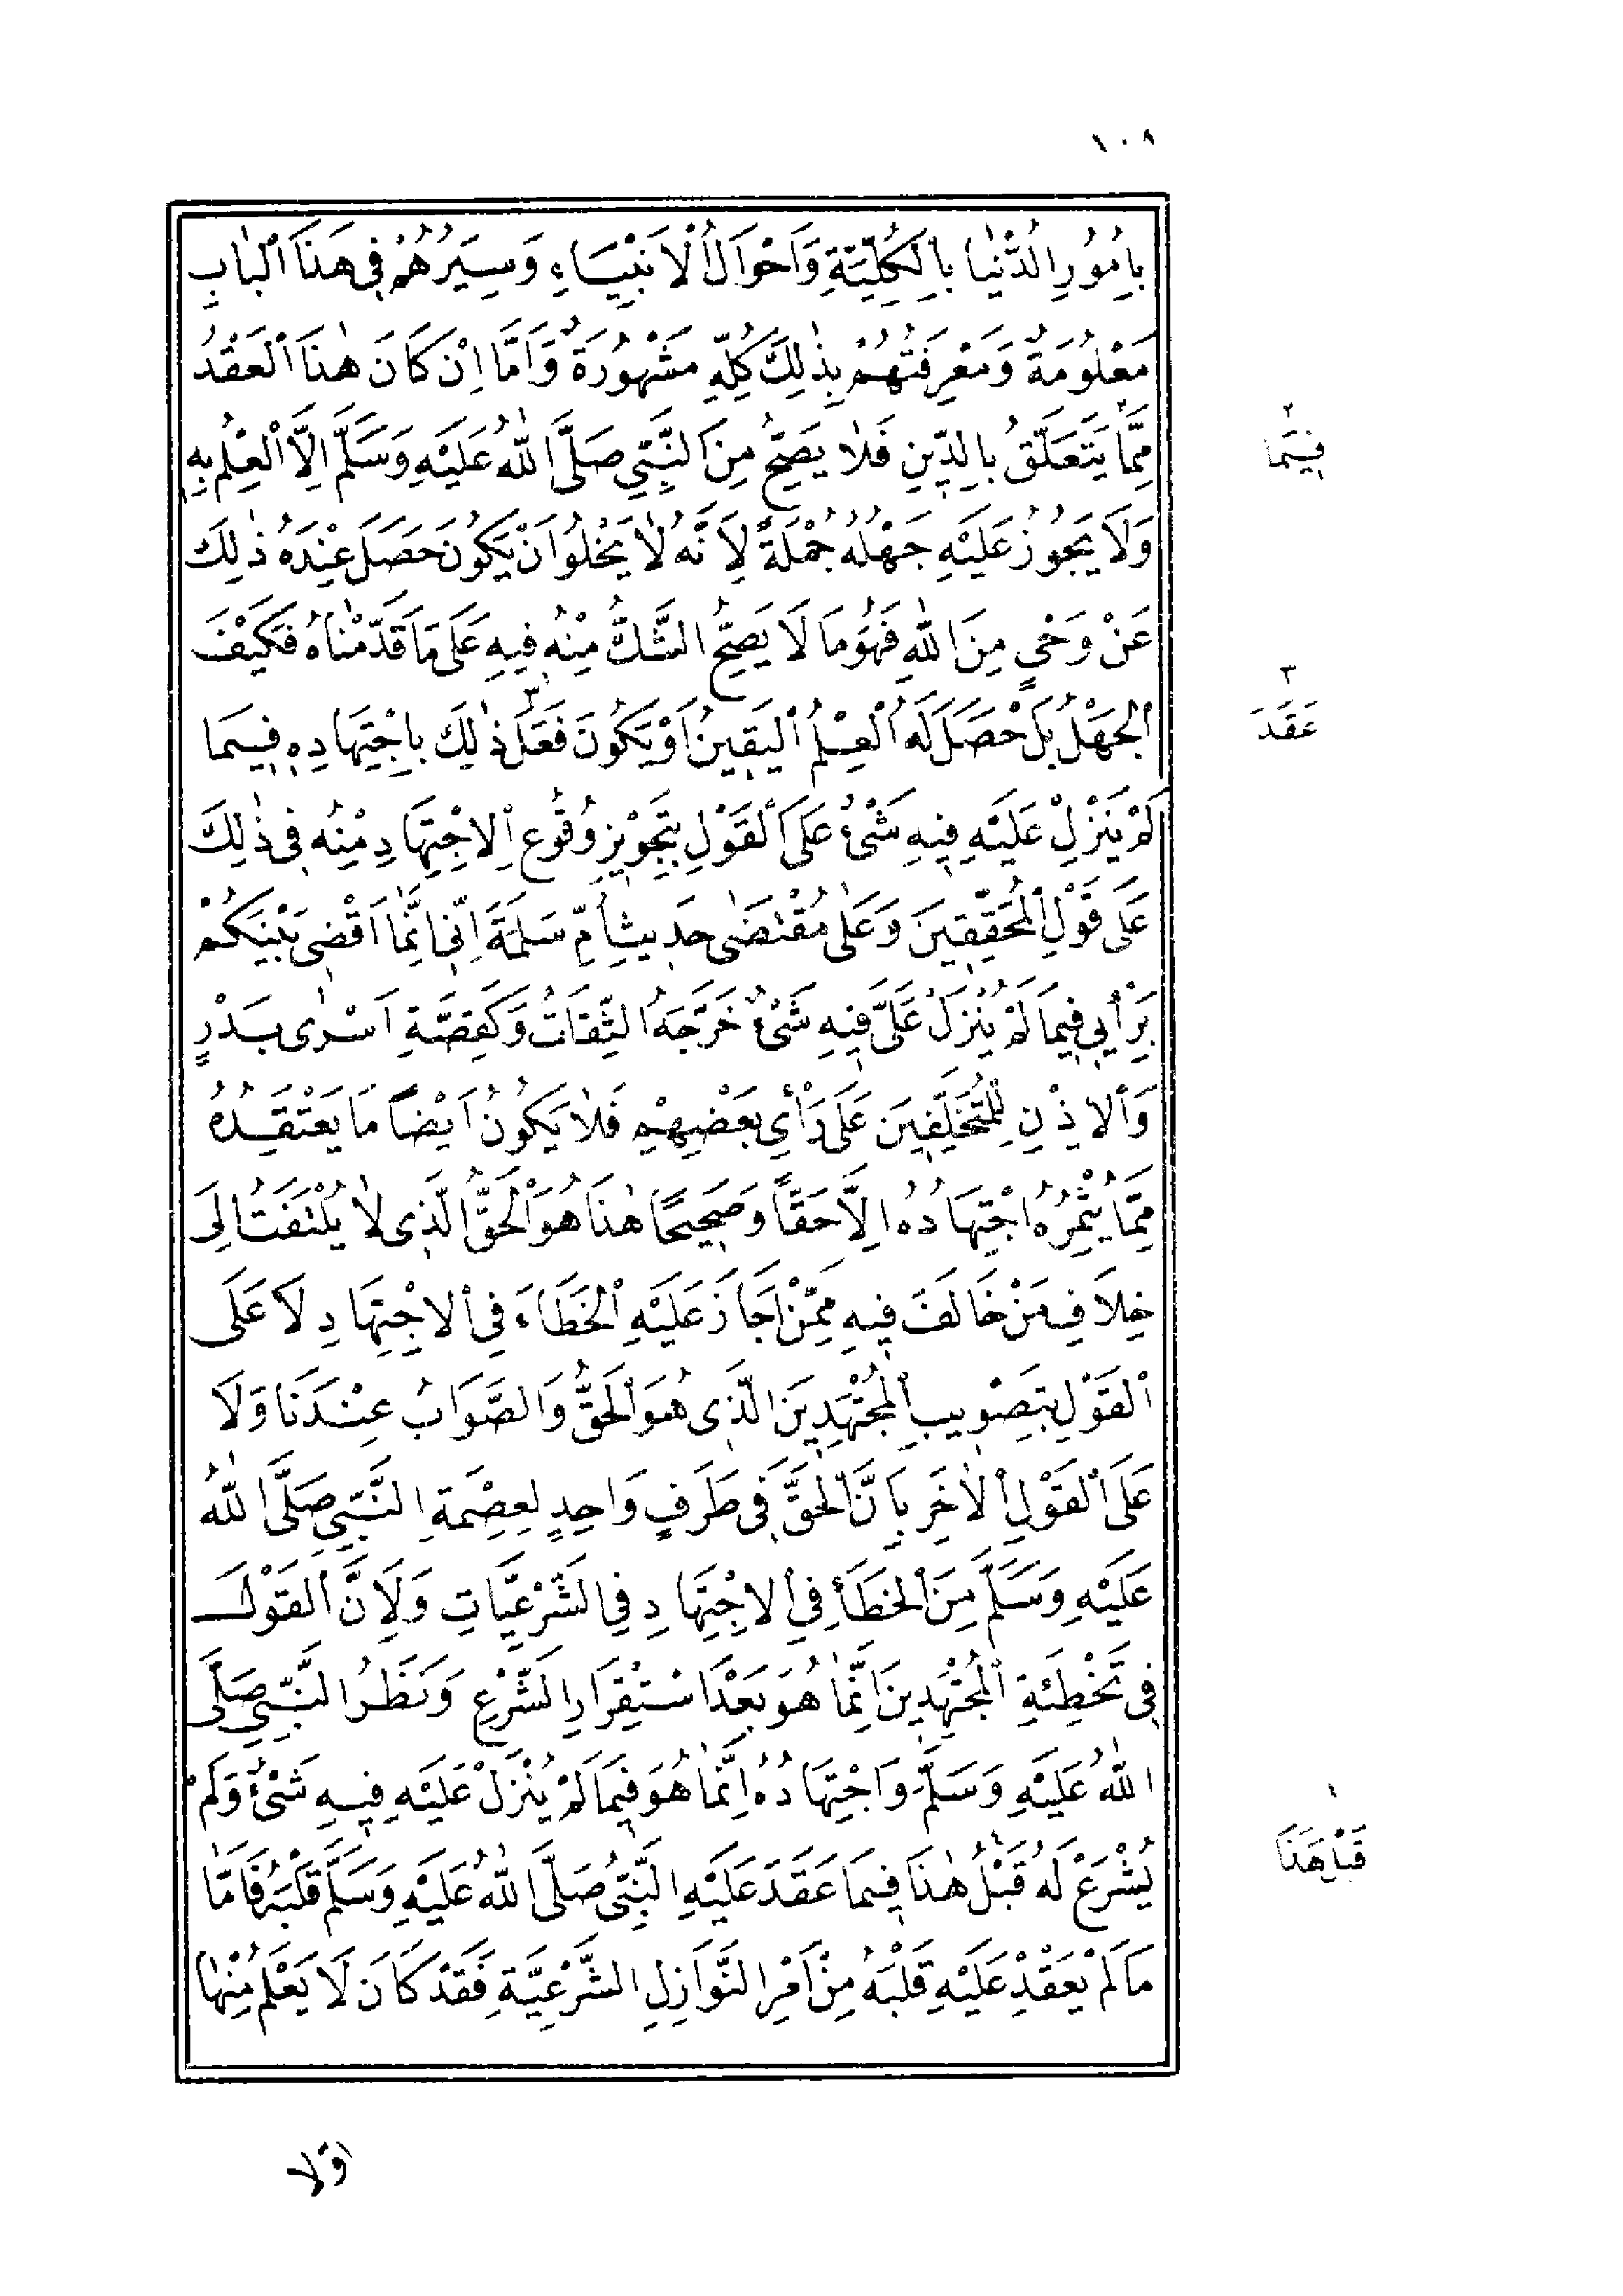 ١٠٨
بِأُمُورِ الدُّنْيَا بِالْكُلِّيَّةِ وَأَحْوَالُ الْأَنْبِيَاءِ وَسِيَرُهُمْ فِي هَذَا الْبَابِ
مَعْلُومَةٌ وَمَعْرِفَتُهُمْ بِذٰلِكَ كُلِّهِ مَشْهُورَةٌ وَاَمَّا اِنْ كَانَ هٰذَا الْعَقْدُ
مِمَّا يَتَعَلَّقُ بِالدِّينِ فَلَا يَصِحُّ مِنَ النَّبِيِّ صَلَّى اللهُ عَلَيْهِ وَسَلَّمَ اِلَّا الْعِلْمُ بِهِ
٢
فِيمَا
وَلَا يَجُوزُ عَلَيْهِ جَهْلُهُ جُمْلَةً لِاَنَّهُ لَا يَخْلُوا اَنْ يَكُونَ حَصَلَ عِنْدَهُ ذٰلِكَ
عَنْ وَحْيٍ مِنَ اللهِ فَهُوَ مَا لَا يَصِحُّ الشَّكُّ مِنْهُ فِيهِ عَلَى مَا قَدَّمْنَاهُ فَكَيْفَ
الْجَهْلُ بَلْ حَصَلَ لَهُ الْعِلْمُ الْيَقِينُ اَوْ يَكُونَ فَعَلَ ذٰلِكَ بِاجْتِهَادِهِ فِيمَا
٣
عَقَدَ
لَمْ يَنْزِلْ عَلَيْهِ فِيهِ شَيْءٌ عَلَى الْقَوْلِ بِتَجْوِيزِ وُقُوعِ الِاجْتِهَادِ مِنْهُ فِي ذٰلِكَ
عَلَى قَوْلِ الْمُحَقِّقِينَ وَعَلَى مُقْتَضٰى حَدِيثِ اُمِّ سَلَمَةَ اِنِّي اِنَّمَا اَقْضِي بَيْنَكُمْ
بِرَأْيِي فِيمَا لَمْ يُنْزَلْ عَلَيَّ فِيهِ شَيْءٌ خَرَّجَهُ الثِّقَاتُ وَكَقِصَّةِ اَسْرٰى بَدْرٍ
وَالْاِذْنِ لِلْمُتَخَلِّفِينَ عَلَى رَأْيِ بَعْضِهِمْ فَلَا يَكُونُ اَيْضًا مَا يَعْتَقِدُهُ
مِمَّا يُثْمِرُهُ اجْتِهَادُهُ اِلَّا حَقًّا وَصَحِيحًا هٰذَا هُوَ الْحَقُّ الَّذِي لَا يُلْتَفَتُ اِلَى
خِلَافِ مَنْ خَالَفَ فِيهِ مِمَّنْ اَجَازَ عَلَيْهِ الْخَطَاءَ فِي الِاجْتِهَادِ لَا عَلَى
الْقَوْلِ بِتَصْوِيبِ الْمُجْتَهِدِينَ الَّذِي هُوَ الْحَقُّ وَالصَّوَابُ عِنْدَنَا وَلَا
عَلَى الْقَوْلِ الْاٰخَرِ بِاَنَّ الْحَقَّ فِي طَرَفٍ وَاحِدٍ لِعِصْمَةِ النَّبِيِّ صَلَّى اللهُ
عَلَيْهِ وَسَلَّمَ مِنَ الْخَطَأِ فِي الِاجْتِهَادِ فِي الشَّرْعِيَّاتِ وَلِاَنَّ الْقَوْلَ
فِي تَخْطِئَةِ الْمُجْتَهِدِينَ اِنَّمَا هُوَ بَعْدَ اسْتِقْرَارِ الشَّرْعِ وَنَظَرُ النَّبِيِّ صَلَّى
اللهُ عَلَيْهِ وَسَلَّمَ وَاجْتِهَادُهُ اِنَّمَا هُوَ فِيمَا لَمْ يُنْزَلْ عَلَيْهِ فِيهِ شَيْءٌ وَلَمْ
يُشْرَعْ لَهُ قَبْلُ هٰذَا فِيمَا عَقَدَ عَلَيْهِ النَّبِيُّ صَلَّى اللهُ عَلَيْهِ وَسَلَّمَ قَلْبَهُ فَاَمَّا
١
قَبْلِ هَذَا
مَا لَمْ يَعْقِدْ عَلَيْهِ قَلْبَهُ مِنْ اَمْرِ النَّوَازِلِ الشَّرْعِيَّةِ فَقَدْ كَانَ لَا يَعْلَمُ مِنْهَا
اَوَّلًا